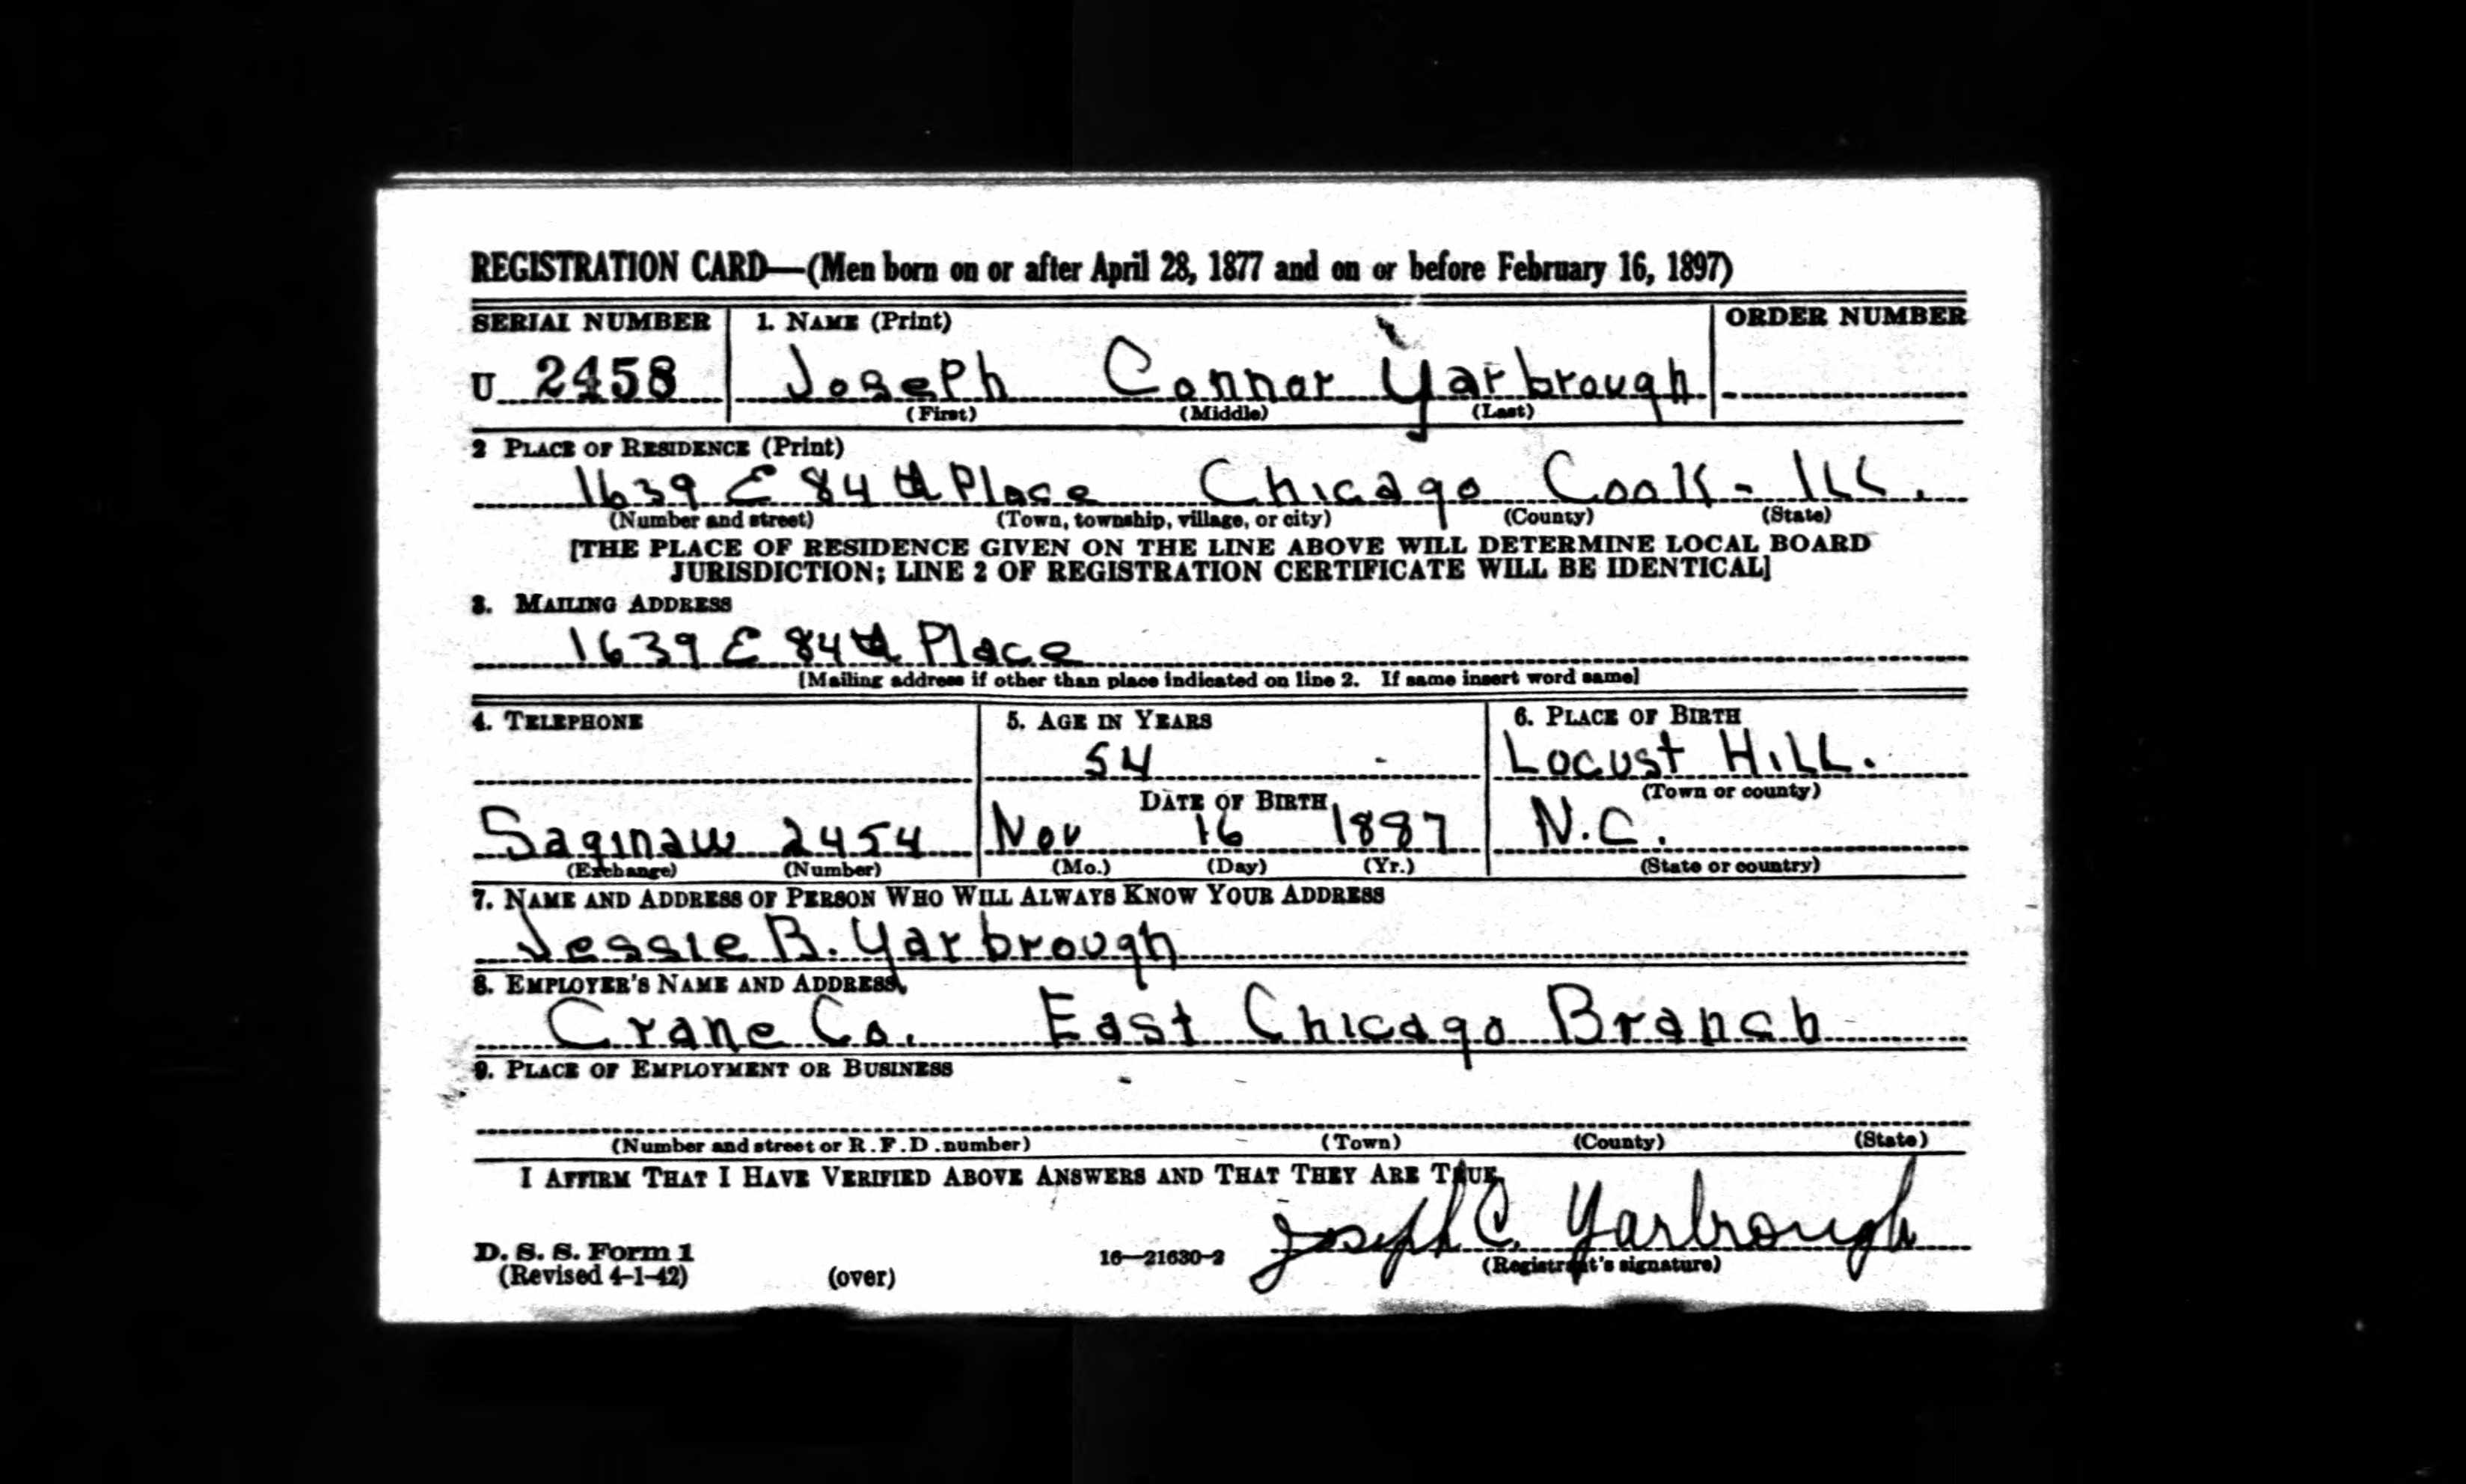 REGISTRATION CARD—(Men born on or after April 28, 1877 and on or before February 16, 1897)
SERIAL NUMBER 1. NAME (Print) ORDER NUMBER
U 2458 Joseph Connor Yarbrough
(First) (Middle) (Last)
2 PLACE OF RESIDENCE (Print)
1639 E 84th Place Chicago Cook - ILL.
(Number and street) (Town, township, village, or city) (County) (State)
[THE PLACE OF RESIDENCE GIVEN ON THE LINE ABOVE WILL DETERMINE LOCAL BOARD
JURISDICTION; LINE 2 OF REGISTRATION CERTIFICATE WILL BE IDENTICAL]
3. MAILING ADDRESS
1639 E 84th Place
[Mailing address if other than place indicated on line 2. If same insert word same]
4. TELEPHONE 5. AGE IN YEARS 6. PLACE OF BIRTH
54 Locust Hill.
DATE OF BIRTH (Town or county)
Saginaw 2454 Nov 16 1887 N.C.
(Exchange) (Number) (Mo.) (Day) (Yr.) (State or country)
7. NAME AND ADDRESS OF PERSON WHO WILL ALWAYS KNOW YOUR ADDRESS
Jessie B. Yarbrough
8. EMPLOYER'S NAME AND ADDRESS
Crane Co. East Chicago Branch
9. PLACE OF EMPLOYMENT OR BUSINESS
(Number and street or R.F.D. number) (Town) (County) (State)
I AFFIRM THAT I HAVE VERIFIED ABOVE ANSWERS AND THAT THEY ARE TRUE.
Joseph C. Yarbrough
D. S. S. Form 1 16—21630-2 (Registrant's signature)
(Revised 4-1-42) (over)